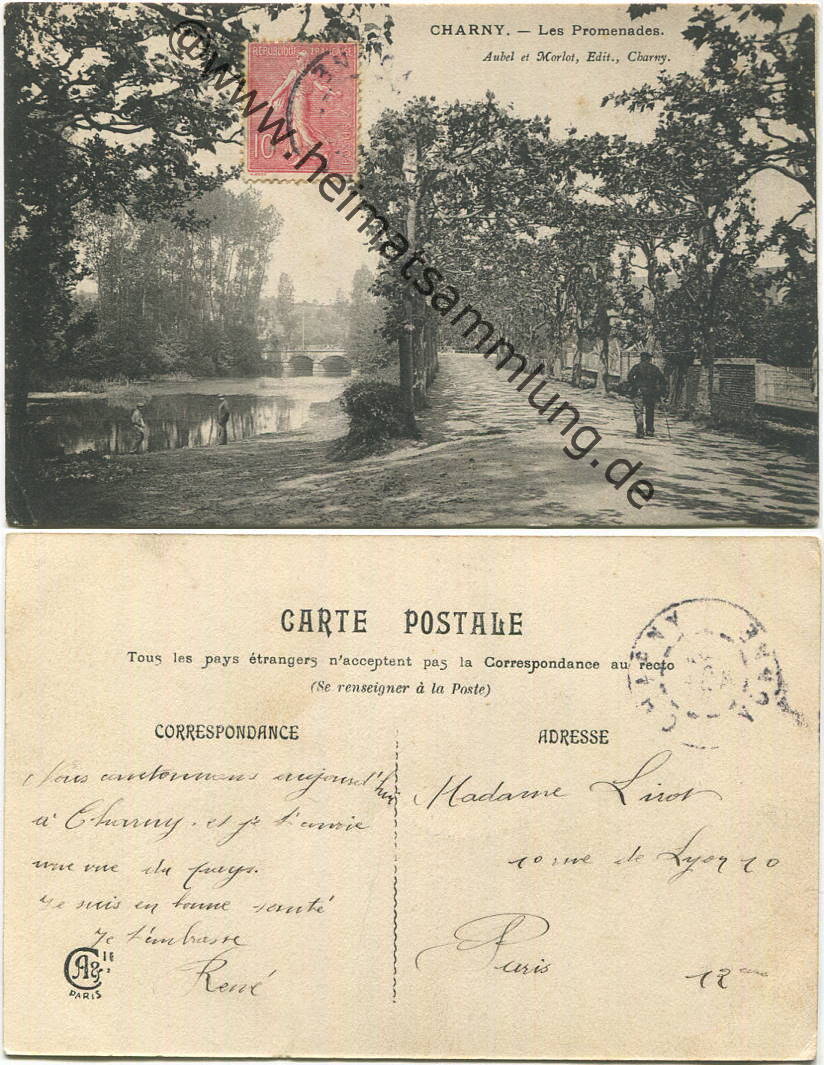 CHARNY. — Les Promenades.
Aubel et Morlot, Edit., Charny.
RÉPUBLIQUE FRANÇAISE
10
©www.heimatsammlung.de
CARTE POSTALE
Tous les pays étrangers n'acceptent pas la Correspondance au recto
(Se renseigner à la Poste)
CHARNY
CORRESPONDANCE
Nous cantonnons aujourd'hui
à Charny et je t'envoie
une vue du pays.
Je suis en bonne santé
Je t'embrasse
René
A & Cie
PARIS
ADRESSE
Madame Lirot
10 rue de Lyon 10
Paris
12 eme